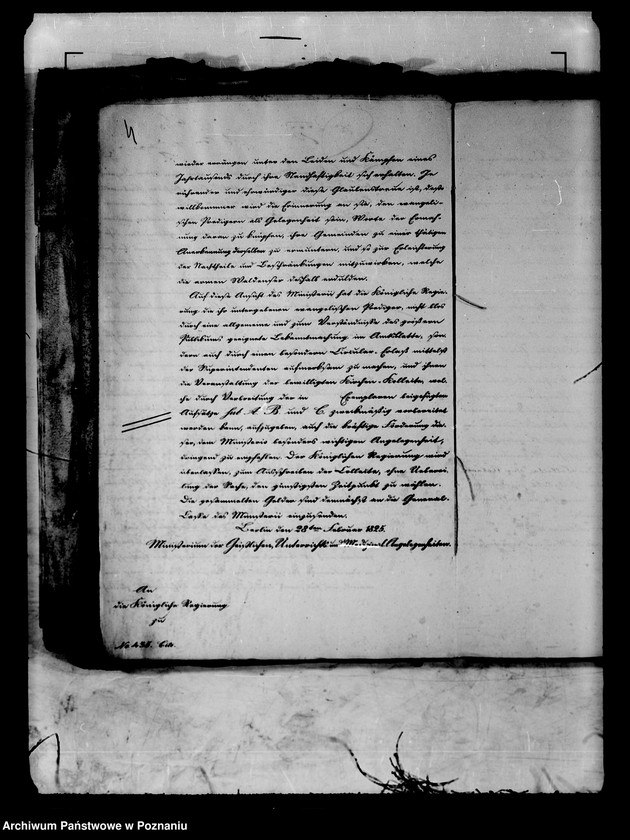 wieder errungen unter den Leiden und Kämpfen eines
Jahrtausends durch ihre Standhaftigkeit sich erhalten. Je
rührender und ehrwürdiger diese Glaubenstreue ist, desto
willkommener wird die Erinnerung an sie, den evangeli-
schen Predigern als Gelegenheit sein, Worte der Ermah-
nung daran zu knüpfen, ihre Gemeinden zu einer thätigen
Anerkennung derselben zu ermuntern, und so zur Erleichterung
der Nachtheile und Beschränkungen mitzuwirken, welche
die armen Waldenser deshalb erdulden.
Auf diese Ansicht des Ministerii hat die Königliche Regie-
rung die ihr untergebenen evangelischen Prediger, nicht blos
durch eine allgemeine und zum Verständnisse des größern
Publikums geeignete Bekanntmachung im Amtsblatte, son-
dern auch durch einen besondern Circular-Erlaß mittelst
der Superintendenten aufmerksam zu machen, und ihnen
die Veranstaltung der bewilligten Kirchen-Kollekte, wel-
che durch Vertheilung der in Exemplaren beigefügten
Aufsätze sub A B und C. zweckmäßig vorbereitet
werden kann, aufzugeben, auch die kräftige Förderung die-
ser, dem Ministerio besonders wichtigen Angelegenheit,
dringend zu empfehlen. Der Königlichen Regierung wird
überlassen, zum Ausschreiben der Collekte, ohne Ueberei-
lung der Sache, den günstigsten Zeitpunkt zu wählen.
Die gesammelten Gelder sind demnächst an die General-
Casse des Ministerii einzusenden.
Berlin den 28ten Februar 1825.
Ministerium der Geistlichen, Unterrichts und Medizinal Angelegenheiten.
An
die Königliche Regierung
zu
Archiwum Państwowe w Poznaniu